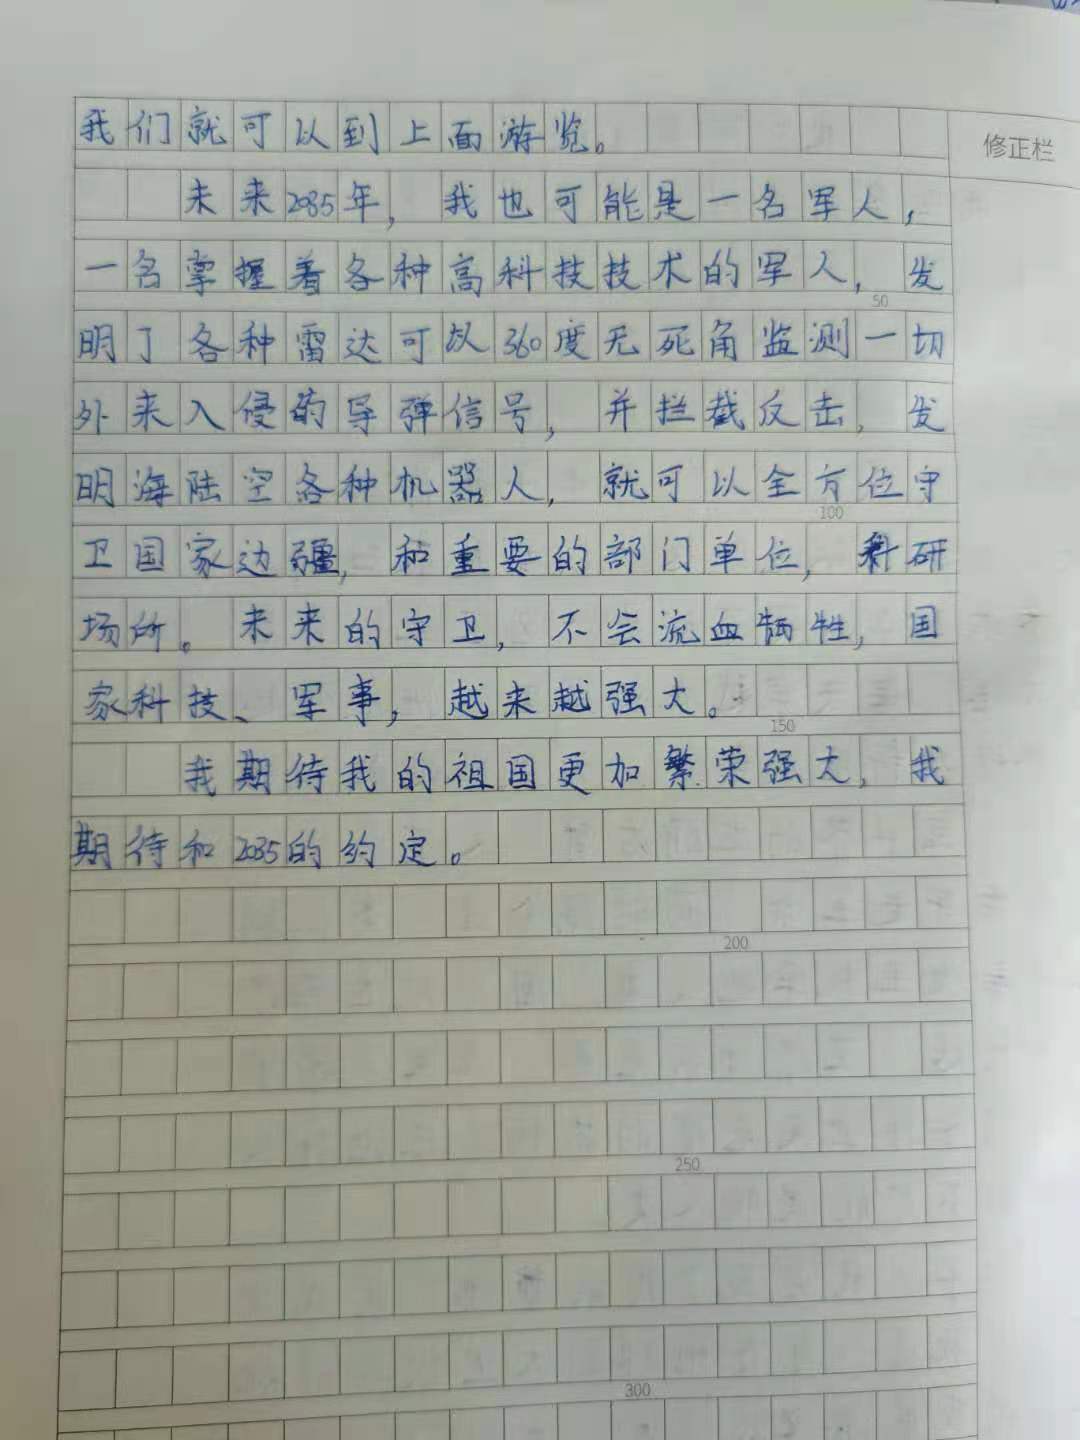 我们就可以到上面游览。
修正栏
未来2035年，我也可能是一名军人，
一名掌握着各种高科技技术的军人，发
50
明了各种雷达可以360度无死角监测一切
外来入侵的导弹信号，并拦截反击，发
明海陆空各种机器人，就可以全方位守
100
卫国家边疆，和重要的部门单位，科研
场所。未来的守卫，不会流血牺牲，国
家科技、军事，越来越强大。
150
我期待我的祖国更加繁荣强大，我
期待和2035的约定。
200
250
300